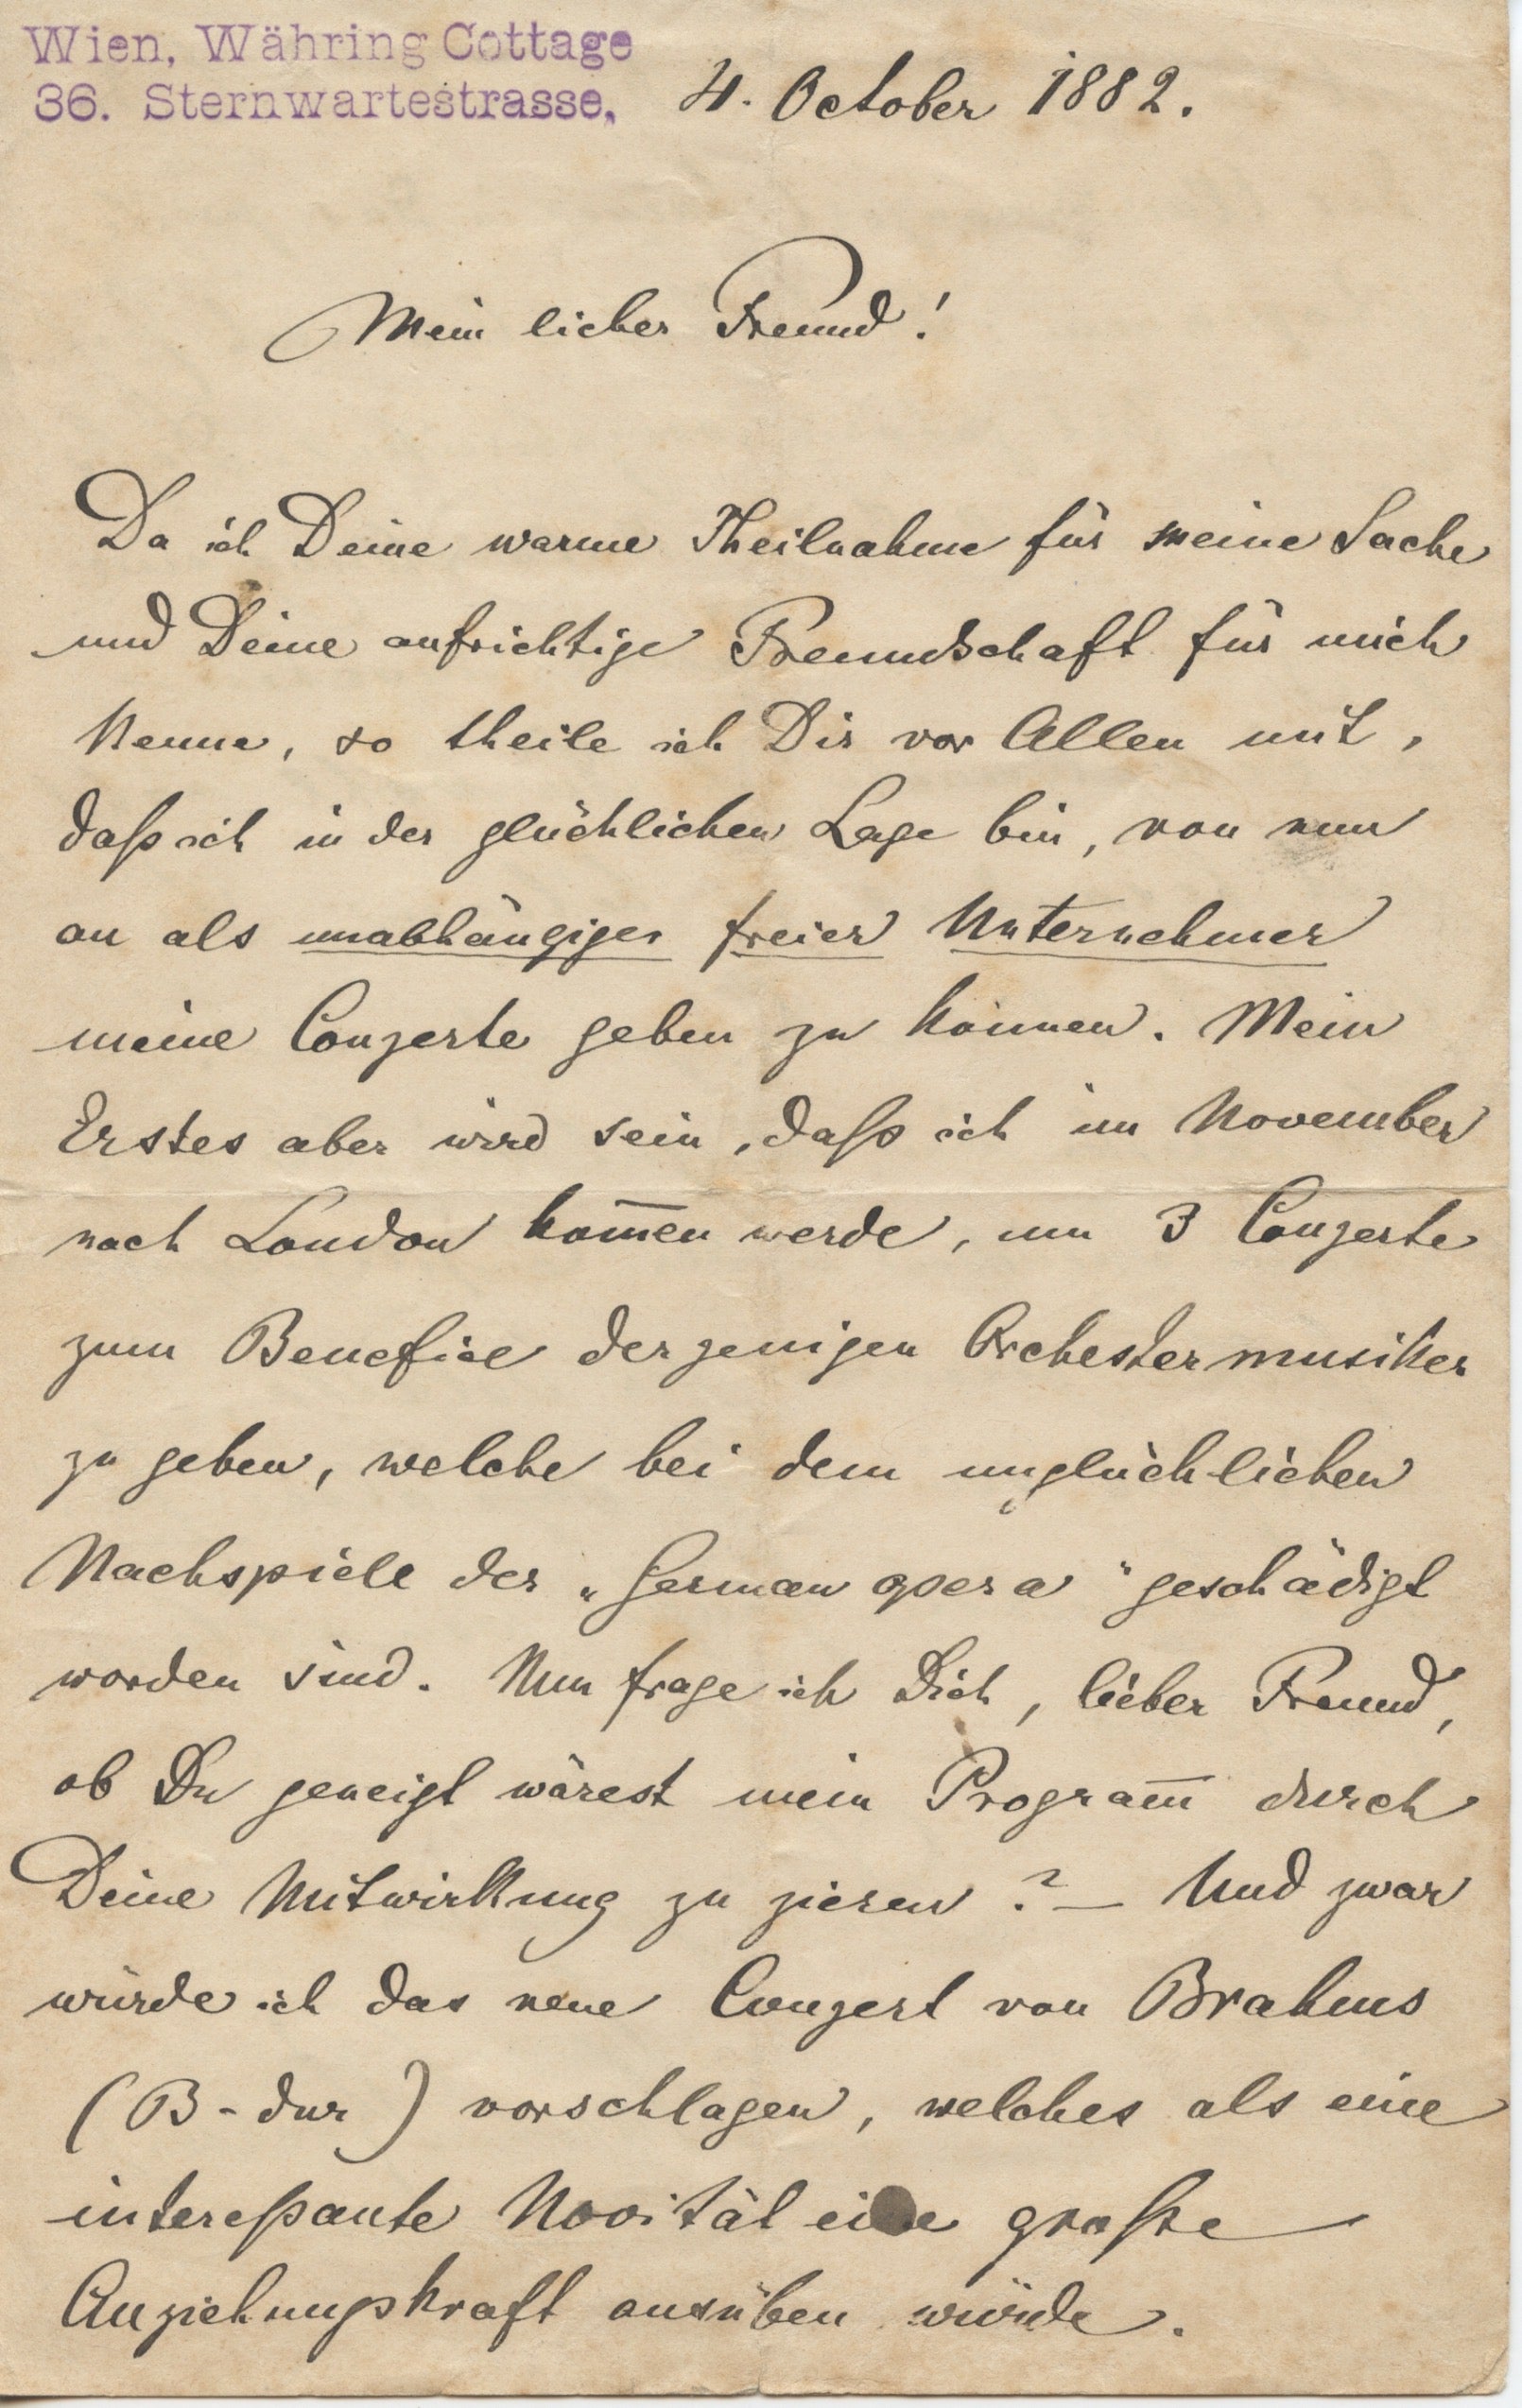 Wien, Währing Cottage
36. Sternwartestrasse, 4. October 1882.
Mein lieber Freund!
Da ich Deine warme Theilnahme für meine Sache
und Deine aufrichtige Freundschaft für mich
kenne, so theile ich Dir vor Allen mit,
daß ich in der glücklichen Lage bin, von nun
an als unabhängiger freier Unternehmer
meine Conzerte geben zu können. Mein
Erstes aber wird sein, daß ich im November
nach London kom̅en werde, um 3 Conzerte
zum Benefice derjenigen Orchestermusiker
zu geben, welche bei dem unglücklichen
Nachspiele der „German opera" geschädigt
worden sind. Nun frage ich Dich, lieber Freund,
ob Du geneigt wärest mein Program̅ durch
Deine Mitwirkung zu zieren? — Und zwar
würde ich das neue Conzert von Brahms
(B-dur) vorschlagen, welches als eine
intereßante Novität eine große
Anziehungskraft ausüben würde.